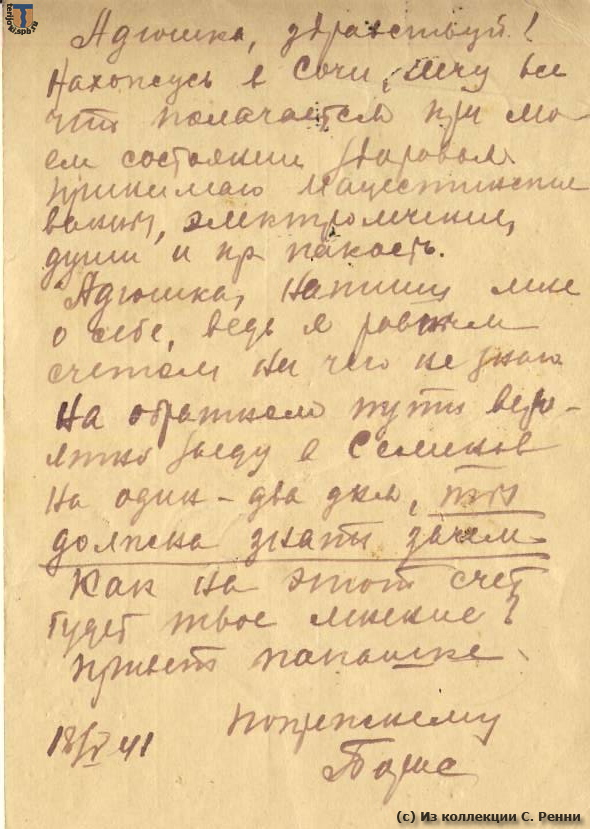 terijoki.spb.ru
Адюшка, здравствуй!
Нахожусь в Сочи, лечу все
что полачается при мо-
ем состоянии здоровом
принимаю Мацестинские
ванны, электролечение,
души и пр пакость.
Адюшка, напиши мне
о себе, ведь я ровным
счетом ни чего не знаю
На обратном пути веро-
ятно заеду в Семенов
на один-два дня, ты
должна знать зачем.
Как на этот счет
будет твое мнение?
Привет папашке.
18/V 41 попрежнему
Борис
(c) Из коллекции С. Ренни